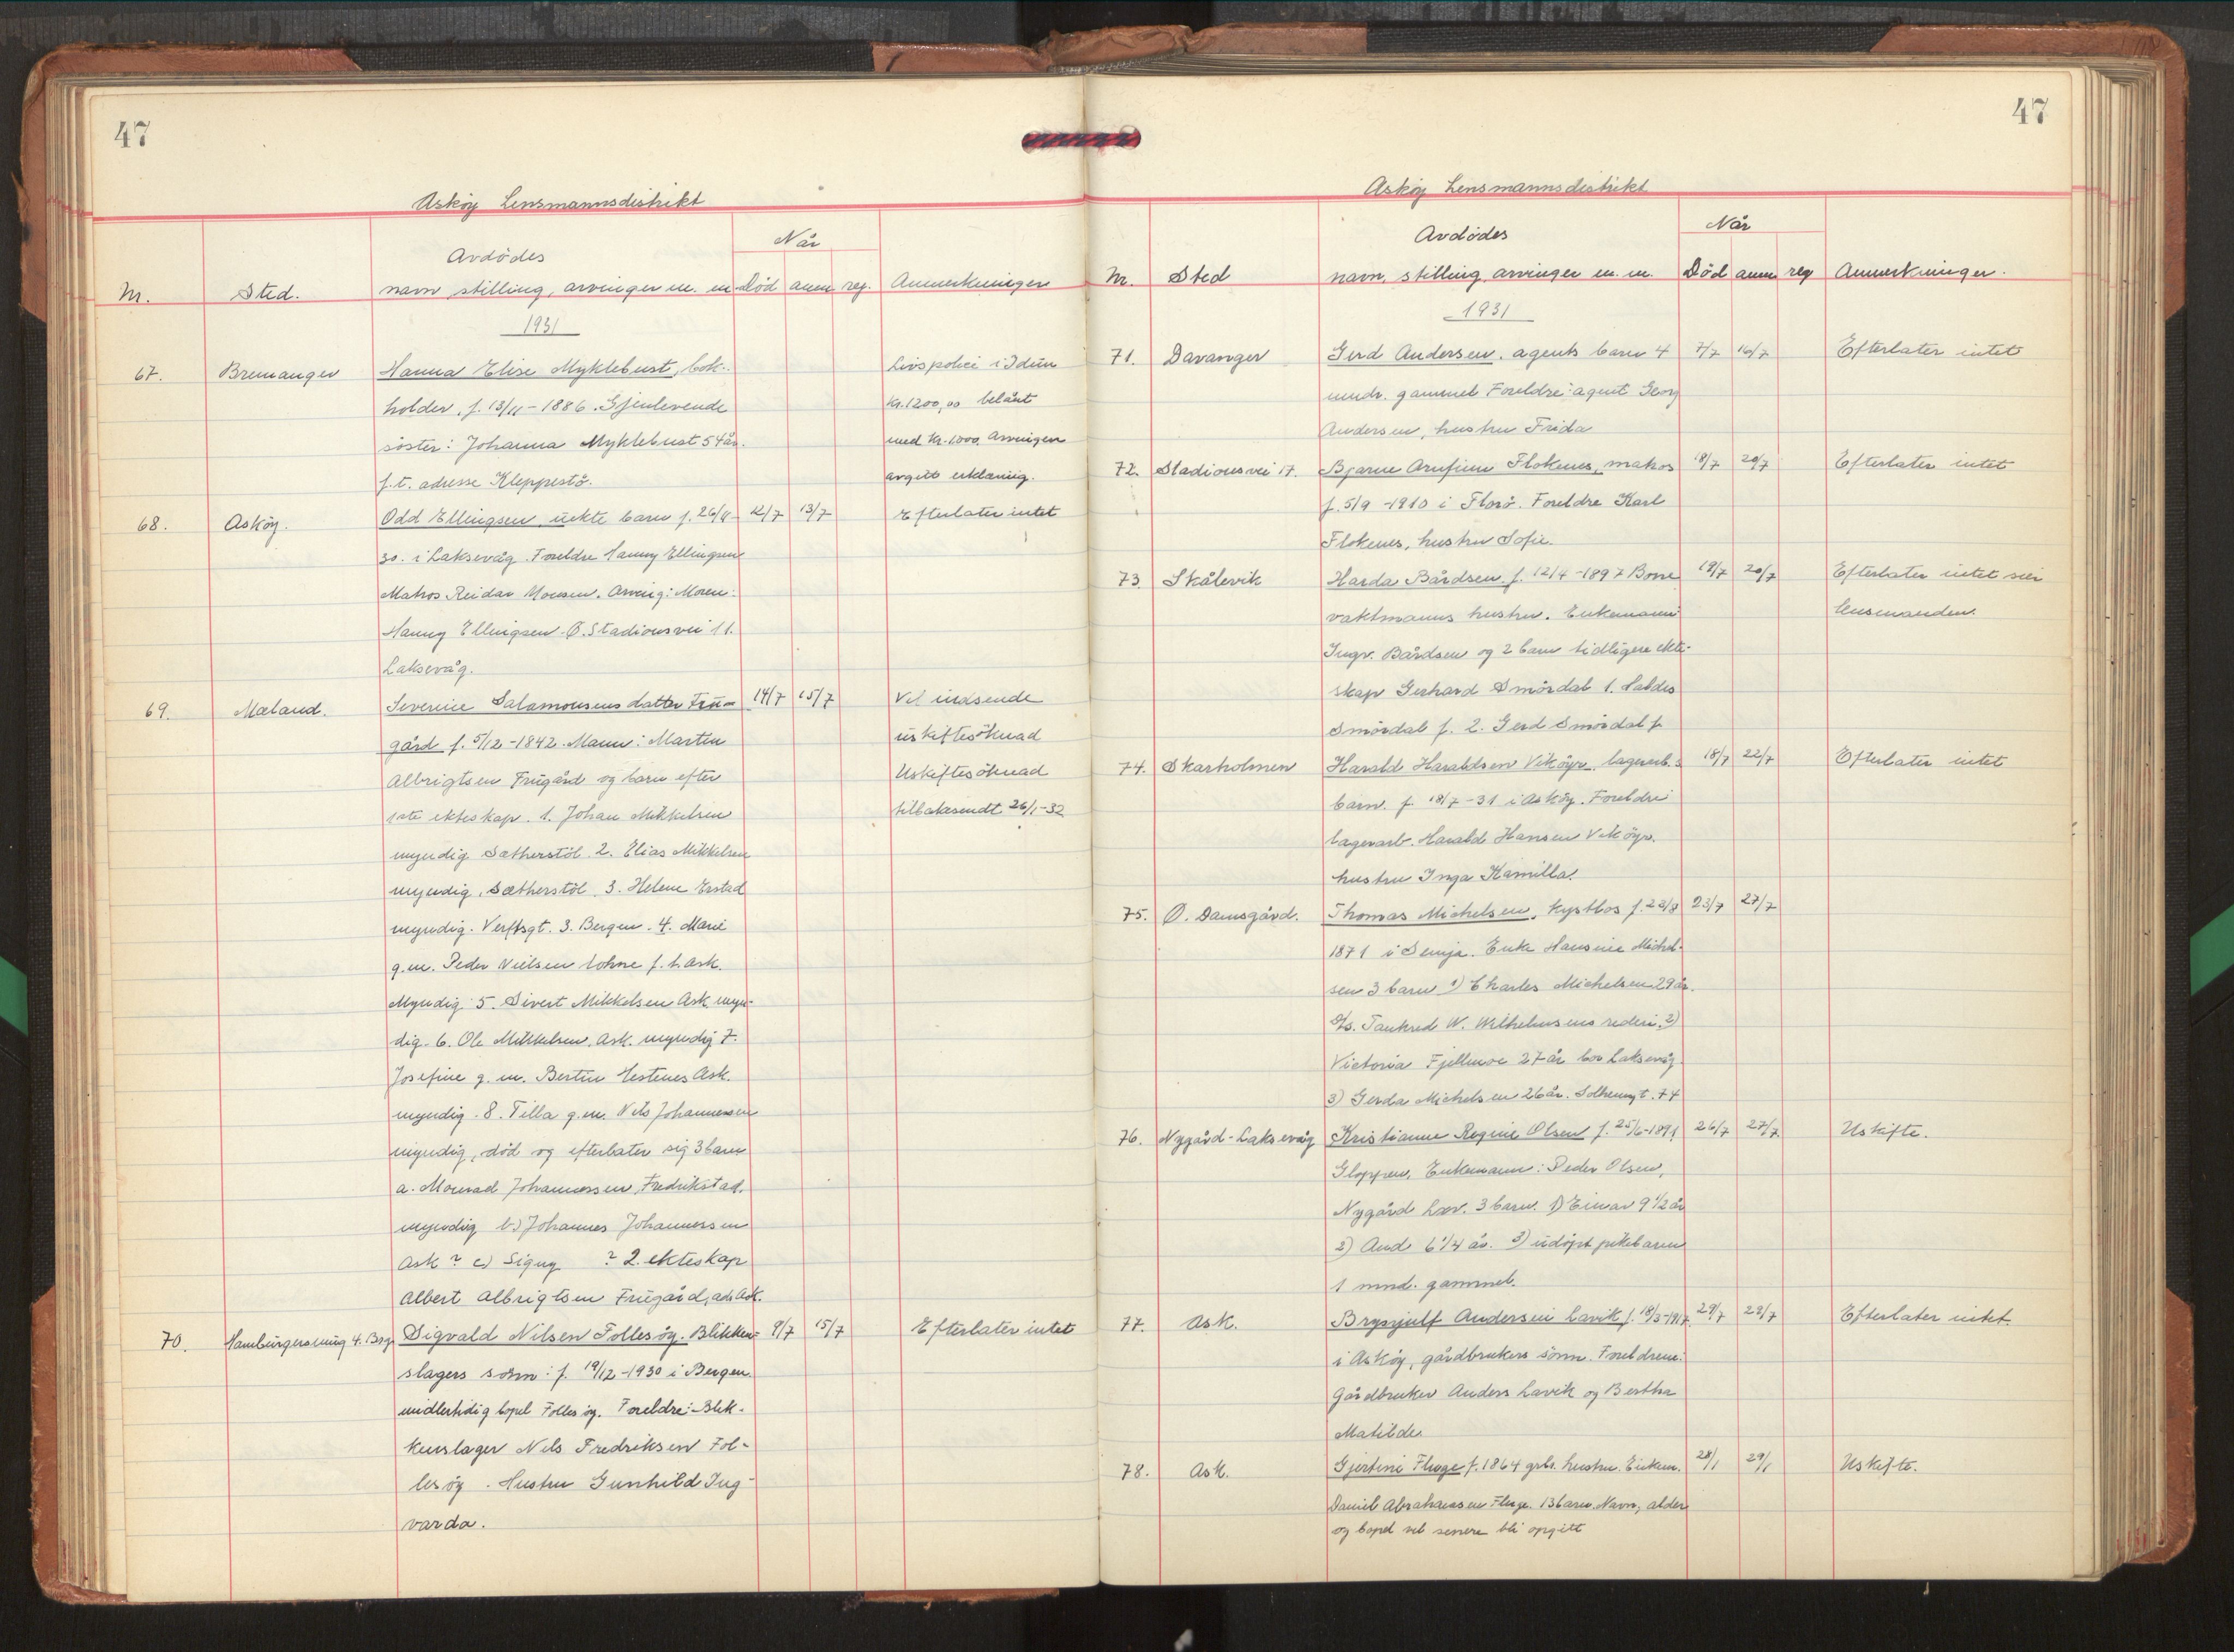 47
Asköy Lensmannsdistrikt
Nr.
Sted.
Avdödes
navn, stilling, arvinger m. m
Når
Död anm reg.
Anmerkninger
1931
67. Bremanger Hanna Elise Myklebust, bok- Livspolice i Idun
holder, f. 13/11-1886. Gjenlevende Kr. 1200,00 belånt
söster: Johanna Myklebust 54 år. med Kr. 1000. Arvingen
f.t. adresse Kleppestö. avgitt erklæring.
68. Asköy. Odd Ellingsen uekte barn f. 26/4- 12/7 13/7 Efterlater intet
30. i Laksevåg. Foreldre Hanny Ellingsen
Matros Reidar Monsen. Arving: Moren:
Hanny Ellingsen. Ö. Stadionsvei 11.
Laksevåg.
69. Mæland. Severine Salamonsens datter Fru- 14/7 15/7 Vil indsende
gård f. 5/12-1842. Mann: Martin uskiftesöknad
Albrigtsen Frugård og barn efter Uskiftesöknad
1ste ekteskap. 1. Johan Mikkelsen tilbakesendt 26/1-32
myndig Sætherstöl 2. Elias Mikkelsen
myndig, Sætherstöl 3. Helene Erstad
myndig. Verftsgt. 3. Bergen. 4. Marie
g.m. Peder Nielsen Lohne f. t. Ask.
Myndig 5. Sivert Mikkelsen Ask myn-
dig. 6. Ole Mikkelsen, Ask. myndig 7.
Josefine g. m. Bertin Hestenes Ask.
myndig. 8. Tilla g.m. Nils Johannesen
myndig, död og efterlater sig 3 barn
a. Monrad Johannessen, Fredrikstad.
myndig b.) Johannes Johannessen
Ask ? c) Signy ? 2. ekteskap
Albert Albrigtsen Frugård, adr. Ask.
70. Hamburgersmug 4. Brg. Sigvald Nilsen Follesöy. Blikken- 9/7 15/7 Efterlater intet
slagers sönn: f. 19/12-1930 i Bergen.
midlertidig bopel Follesöy. Foreldre: Blik-
kenslager Nils Fredriksen Fol-
lesöy. Hustru Gunhild Ing-
varda.
47
Asköy Lensmannsdistrikt
Nr.
Sted
Avdödes
navn, stilling, arvinger m. m.
Når
Död anm reg
Anmerkninger.
1931
71. Davanger Gerd Andersen, agents barn 4 7/7 16/7 Efterlater intet
mndr. gammel Foreldre: agent Georg
Andersen, hustru Frida
72. Stadionsvei 17. Bjarne Arnfinn Flokenes, matros 18/7 20/7 Efterlater intet
f. 5/9-1910 i Florö. Foreldre Karl
Flokenes, hustru Sofie.
73 Skålevik Harda Bårdsen f. 12/4-1897 Bone 19/7 20/7 Efterlater intet sier
vaktmanns hustru. Enkemann lensmanden.
Ingv. Bårdsen og 2 barn tidligere ekte-
skap Gerhard Smördal 1. Haldis
Smördal f. 2. Gerd Smördal f.
74. Skarholmen Harald Haraldsen Viköyr, lagerarb. s 18/7 22/7 Efterlater intet
barn. f. 18/7-31 i Asköy. Foreldre:
lagerarb. Harald Hansen Viköyr.
hustru Inga Kamilla.
75. Ö. Damsgård. Thomas Michelsen, kystlos f. 22/8 23/7 27/7
1871 i Senja. Enke Hansine Michel-
sen 3 barn 1) Charles Michelsen 29 år.
S/s. Tankred W. Wilhelmsens rederi. 2)
Victoria Fjellmoe 27 år bor Laksevåg.
3) Gerda Michelsen 26 år. Solheimsgt. 74
76. Nygård-Laksevåg Kristianne Regine Olsen f. 25/6-1891 26/7 27/7 Uskifte.
Gloppen. Enkemann: Peder Olsen,
Nygård Lxv. 3 barn. 1) Einar 9 1/2 år
2) Aud 6 1/4 år. 3) udöpt pikebarn
1 mnd. gammel.
77. Ask. Brynjulf Andersen Lavik f. 18/3-1917. 29/7 29/7 Efterlater intet.
i Asköy, gårdbrukers sönn. Foreldrene:
Gårdbruker Anders Lavik og Bertha
Matilde.
78. Ask. Gjertine Fluge f. 1864 grbr. hustru. Enkem. 28/1 29/1 Uskifte.
Daniel Abrahamsen Fluge. 13 barn. Navn, alder
og bopel vil senere bli opgitt